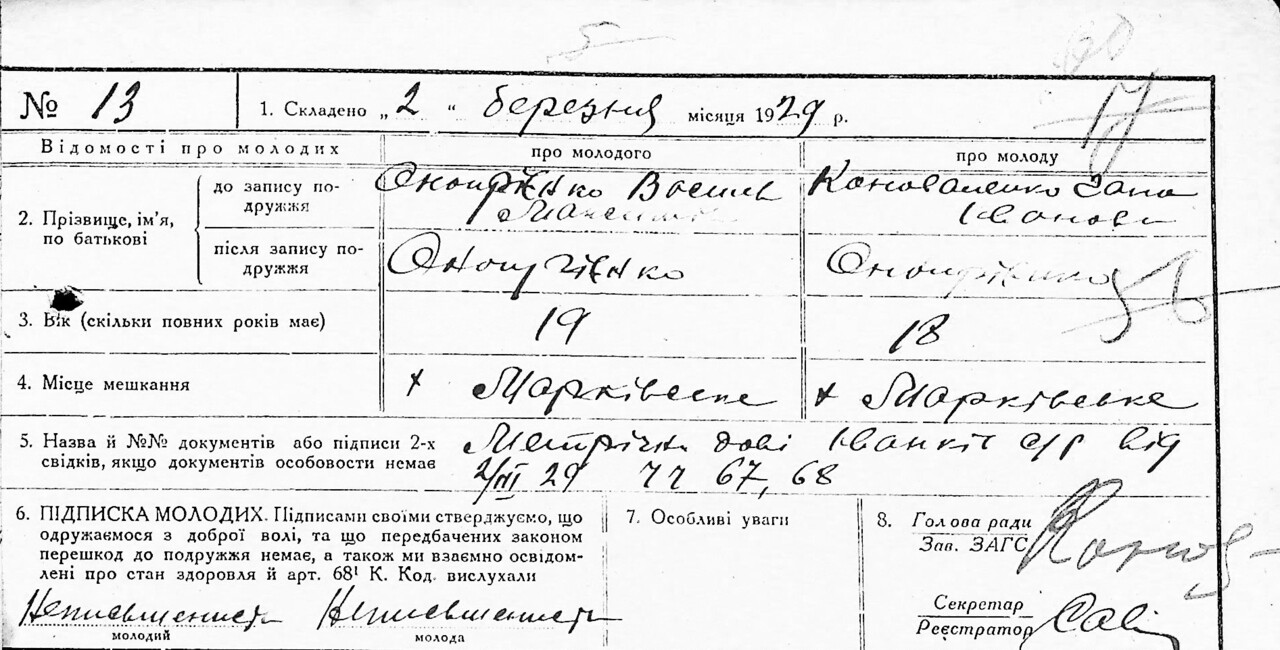 № 13
1. Складено „2“ березня місяця 1929 р.
Відомості про молодих
про молодого
про молоду
2. Прізвище, ім'я, по батькові
до запису подружжя
Онопрієнко Василь
Коноваленко
Іванови
після запису подружжя
Онопрієнко
Онопрієнко
3. Вік (скільки повних років має)
19
18
4. Місце мешкання
х Марківське
х Марківське
5. Назва й №№ документів або підписи 2-х
свідків, якщо документів особовости немає
Метрічн дові Іванкіс с/р від
2/III 29 67, 68
6. ПІДПИСКА МОЛОДИХ. Підписами своїми стверджуємо, що
одружаємося з доброї волі, та що передбачених законом
перешкод до подружжя немає, а також ми взаємно освідом-
лені про стан здоров'я й арт. 68¹ К. Код. вислухали
Неписьменность Неписьменность
молодий
молода
7. Особливі уваги
8. Голова ради
Зав. ЗАГС
Секретар
Реєстратор